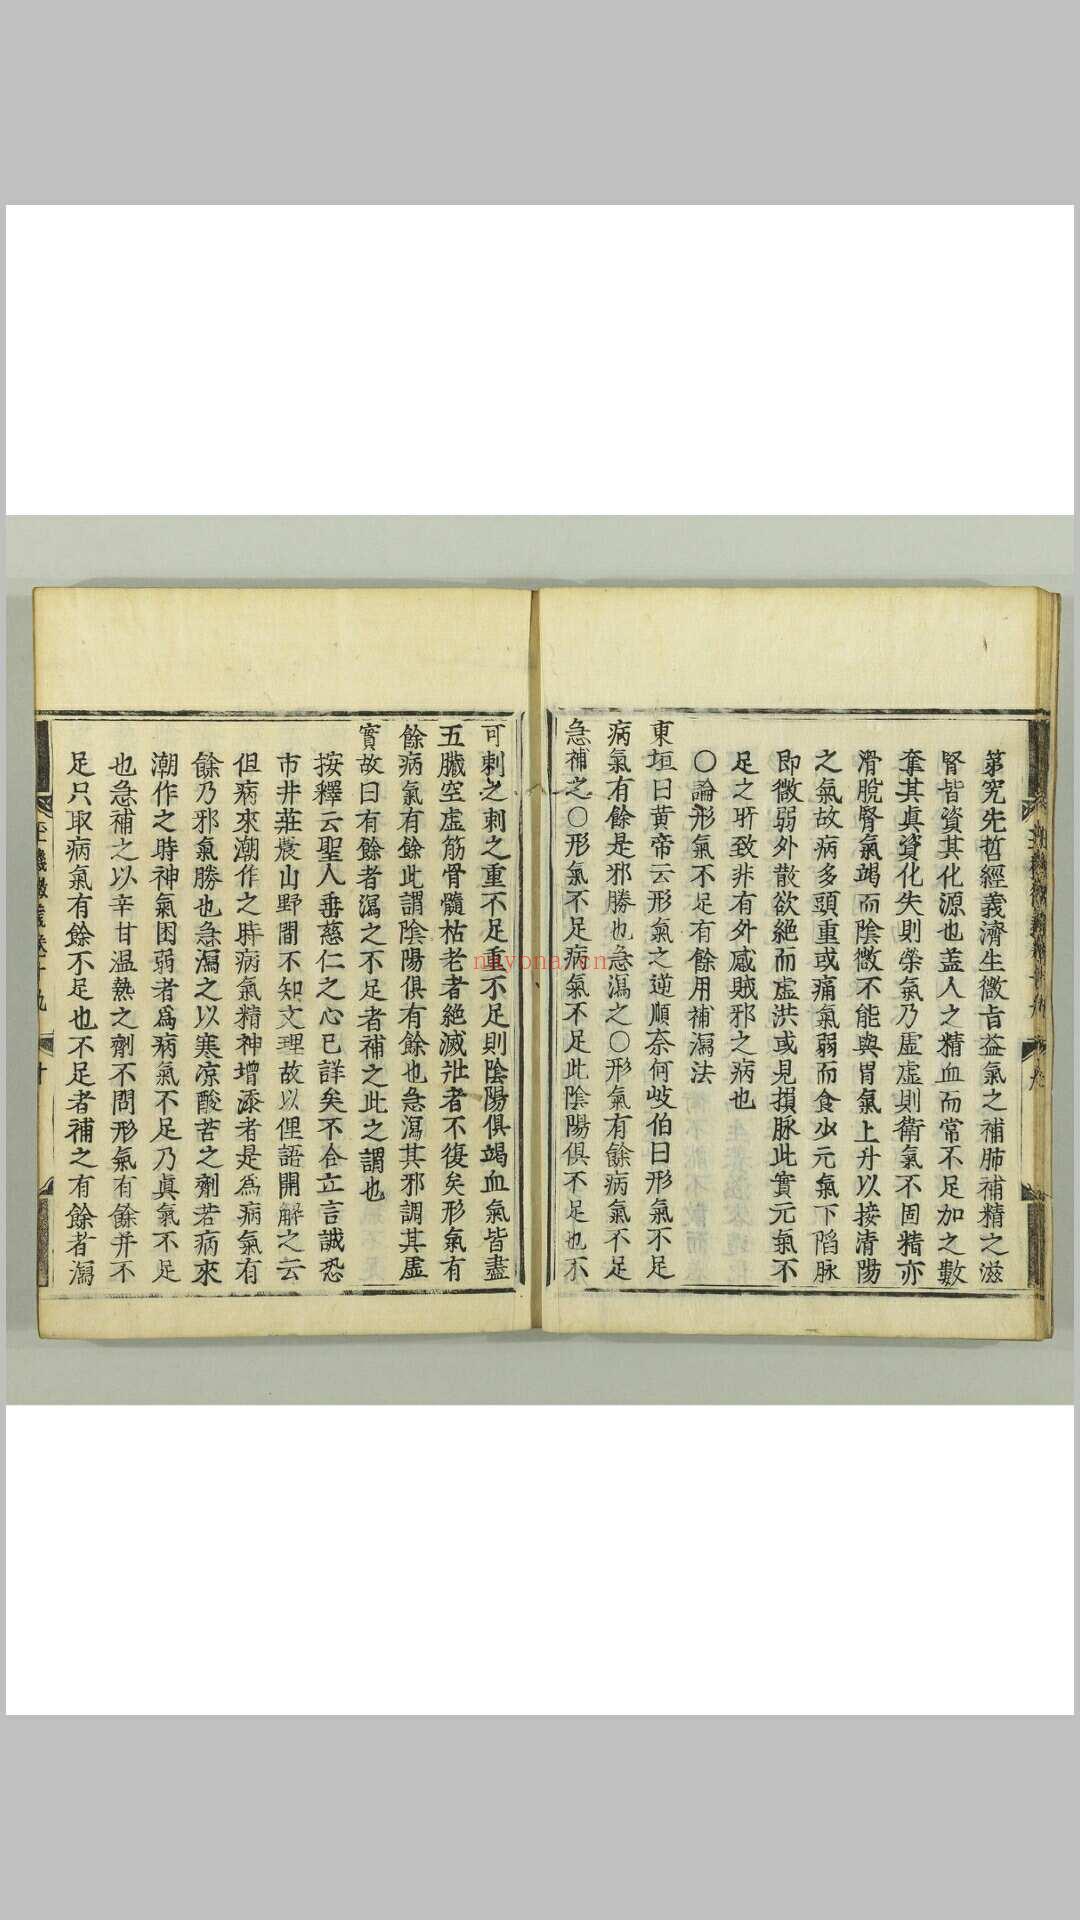 第究先哲經義濟生微旨益氣之補肺補精之滋
腎皆資其化源也盖人之精血而常不足加之數
奪其真資化失則榮氣乃虛虛則衛氣不固精亦
滑脫腎氣竭而陰微不能與胃氣上升以接清陽
之氣故病多頭重或痛氣弱而食少元氣下陷脉
即微弱外散欲絕而虛洪或見損脉此實元氣不
足之所致非有外感賊邪之病也
○論形氣不足有餘用補瀉法
東垣曰黃帝云形氣之逆順奈何岐伯曰形氣不足
病氣有餘是邪勝也急瀉之○形氣有餘病氣不足
急補之○形氣不足病氣不足此陰陽俱不足也不
可刺之刺之重不足重不足則陰陽俱竭血氣皆盡
五臟空虛筋骨髓枯老者絕滅壯者不復矣形氣有
餘病氣有餘此謂陰陽俱有餘也急瀉其邪調其虛
實故曰有餘者瀉之不足者補之此之謂也
按釋云聖人垂慈仁之心已詳矣不合立言誠恐
市井莊農山野間不知文理故以俚語開解之云
但病來潮作之時病氣精神增添者是為病氣有
餘乃邪氣勝也急瀉之以寒凉酸苦之劑若病來
潮作之時神氣困弱者為病氣不足乃真氣不足
也急補之以辛甘温熱之劑不問形氣有餘并不
足只取病氣有餘不足也不足者補之有餘者瀉
玉機微義卷十九 十
nayona.cn